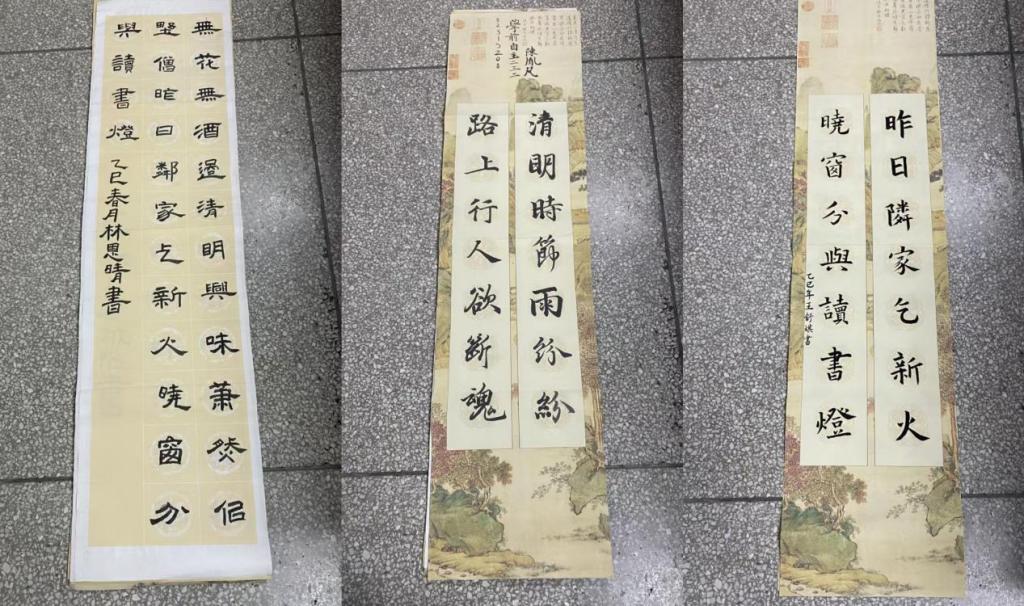 無花無酒過清明興味蕭然佀
野僧昨日鄰家乞新火曉窗分
與讀書燈
乙巳春月林思晴書
清明時節雨紛紛
路上行人欲斷魂
昨日隣家乞新火
曉窗分與讀書燈
乙巳年王舒祺書